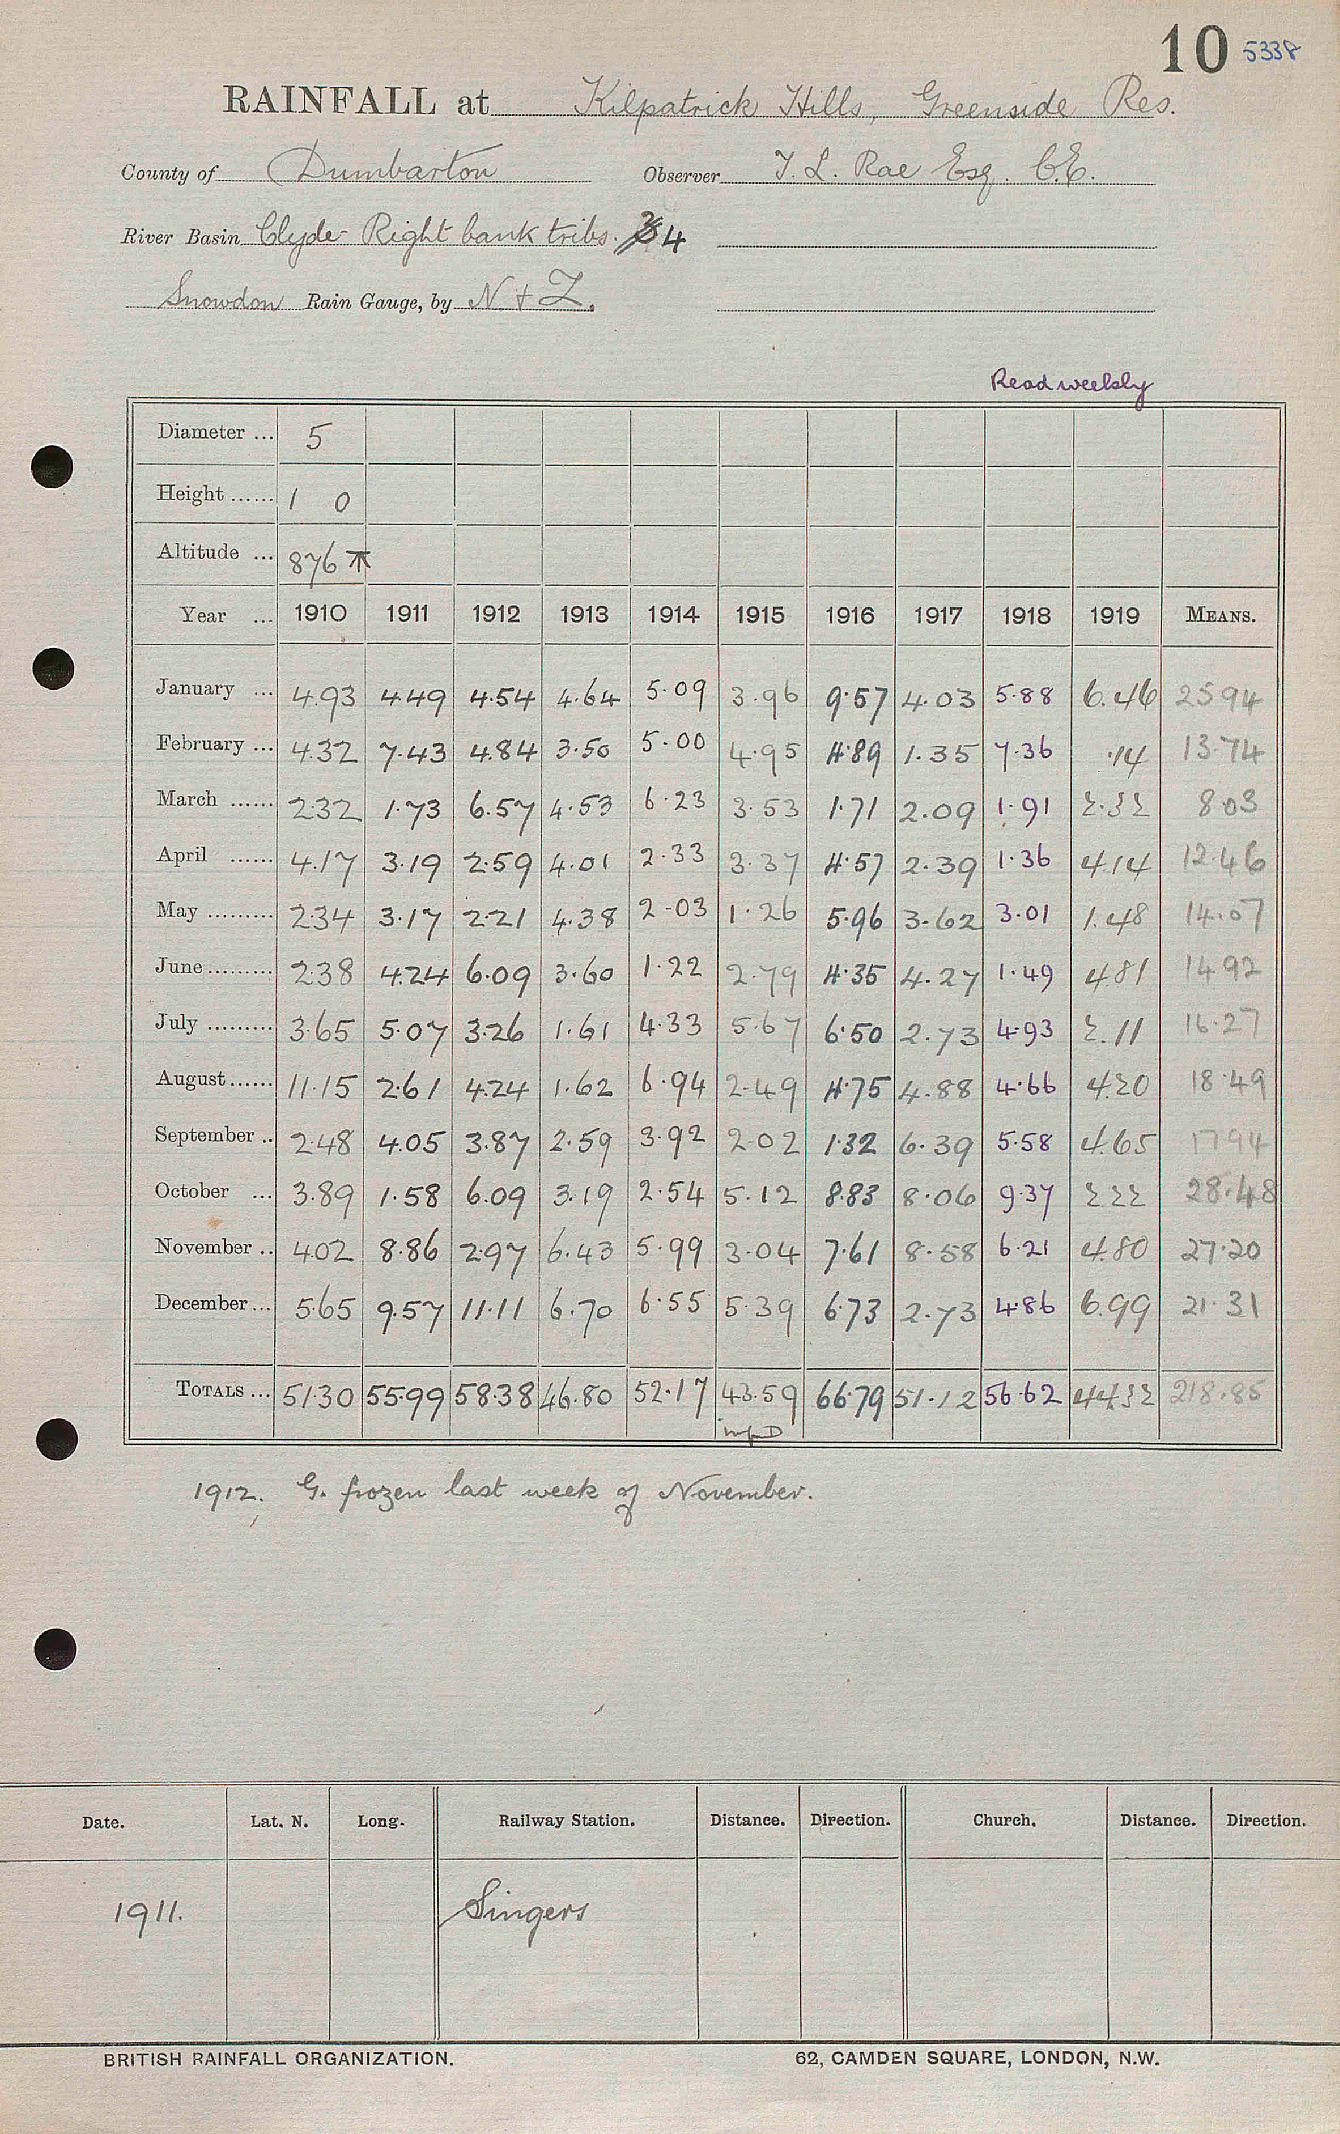 10 5338
RAINFALL at Kilpatrick Hills, Greenside Res.
County of Dumbarton Observer T. L. Rae Esq. C.E.
River Basin Clyde Right bank tribs. 4
Snowdon Rain Gauge, by N + Z.
Read weekly
Diameter ... 5
Height ...... 1 0
Altitude ... 876
Year ... 1910 1911 1912 1913 1914 1915 1916 1917 1918 1919 MEANS.
January ... 4.93 4.49 4.54 4.64 5.09 3.96 9.57 4.03 5.88 6.46 25 94
February ... 4.32 7.43 4.84 3.50 5.00 4.95 4.89 1.35 7.36 .14 13.74
March ...... 2.32 1.73 6.57 4.53 6.23 3.53 1.71 2.09 1.91 2.32 8.03
April ...... 4.17 3.19 2.59 4.01 2.33 3.37 4.57 2.39 1.36 4.14 12.46
May ......... 2.34 3.17 2.21 4.38 2.03 1.26 5.96 3.62 3.01 1.48 14.07
June ......... 2.38 4.24 6.09 3.60 1.22 2.79 4.35 4.27 1.49 4.81 14 92
July ......... 3.65 5.07 3.26 1.61 4.33 5.67 6.50 2.73 4.93 2.11 16.27
August ...... 11.15 2.61 4.24 1.62 6.94 2.49 4.75 4.88 4.66 4.20 18.49
September .. 2.48 4.05 3.87 2.59 3.92 2.02 1.32 6.39 5.58 4.65 17 94
October ... 3.89 1.58 6.09 3.19 2.54 5.12 8.83 8.06 9.37 2.22 28.48
November .. 4.02 8.86 2.97 6.43 5.99 3.04 7.61 8.58 6.21 4.80 27.20
December ... 5.65 9.57 11.11 6.70 6.55 5.39 6.73 2.73 4.86 6.99 21.31
TOTALS ... 51.30 55.99 58.38 46.80 52.17 43.59 66.79 51.12 56.62 44.32 218.85
1912. G. frozen last week of November.
Date. Lat. N. Long. Railway Station. Distance. Direction. Church. Distance. Direction.
1911. Singers
BRITISH RAINFALL ORGANIZATION. 62, CAMDEN SQUARE, LONDON, N.W.